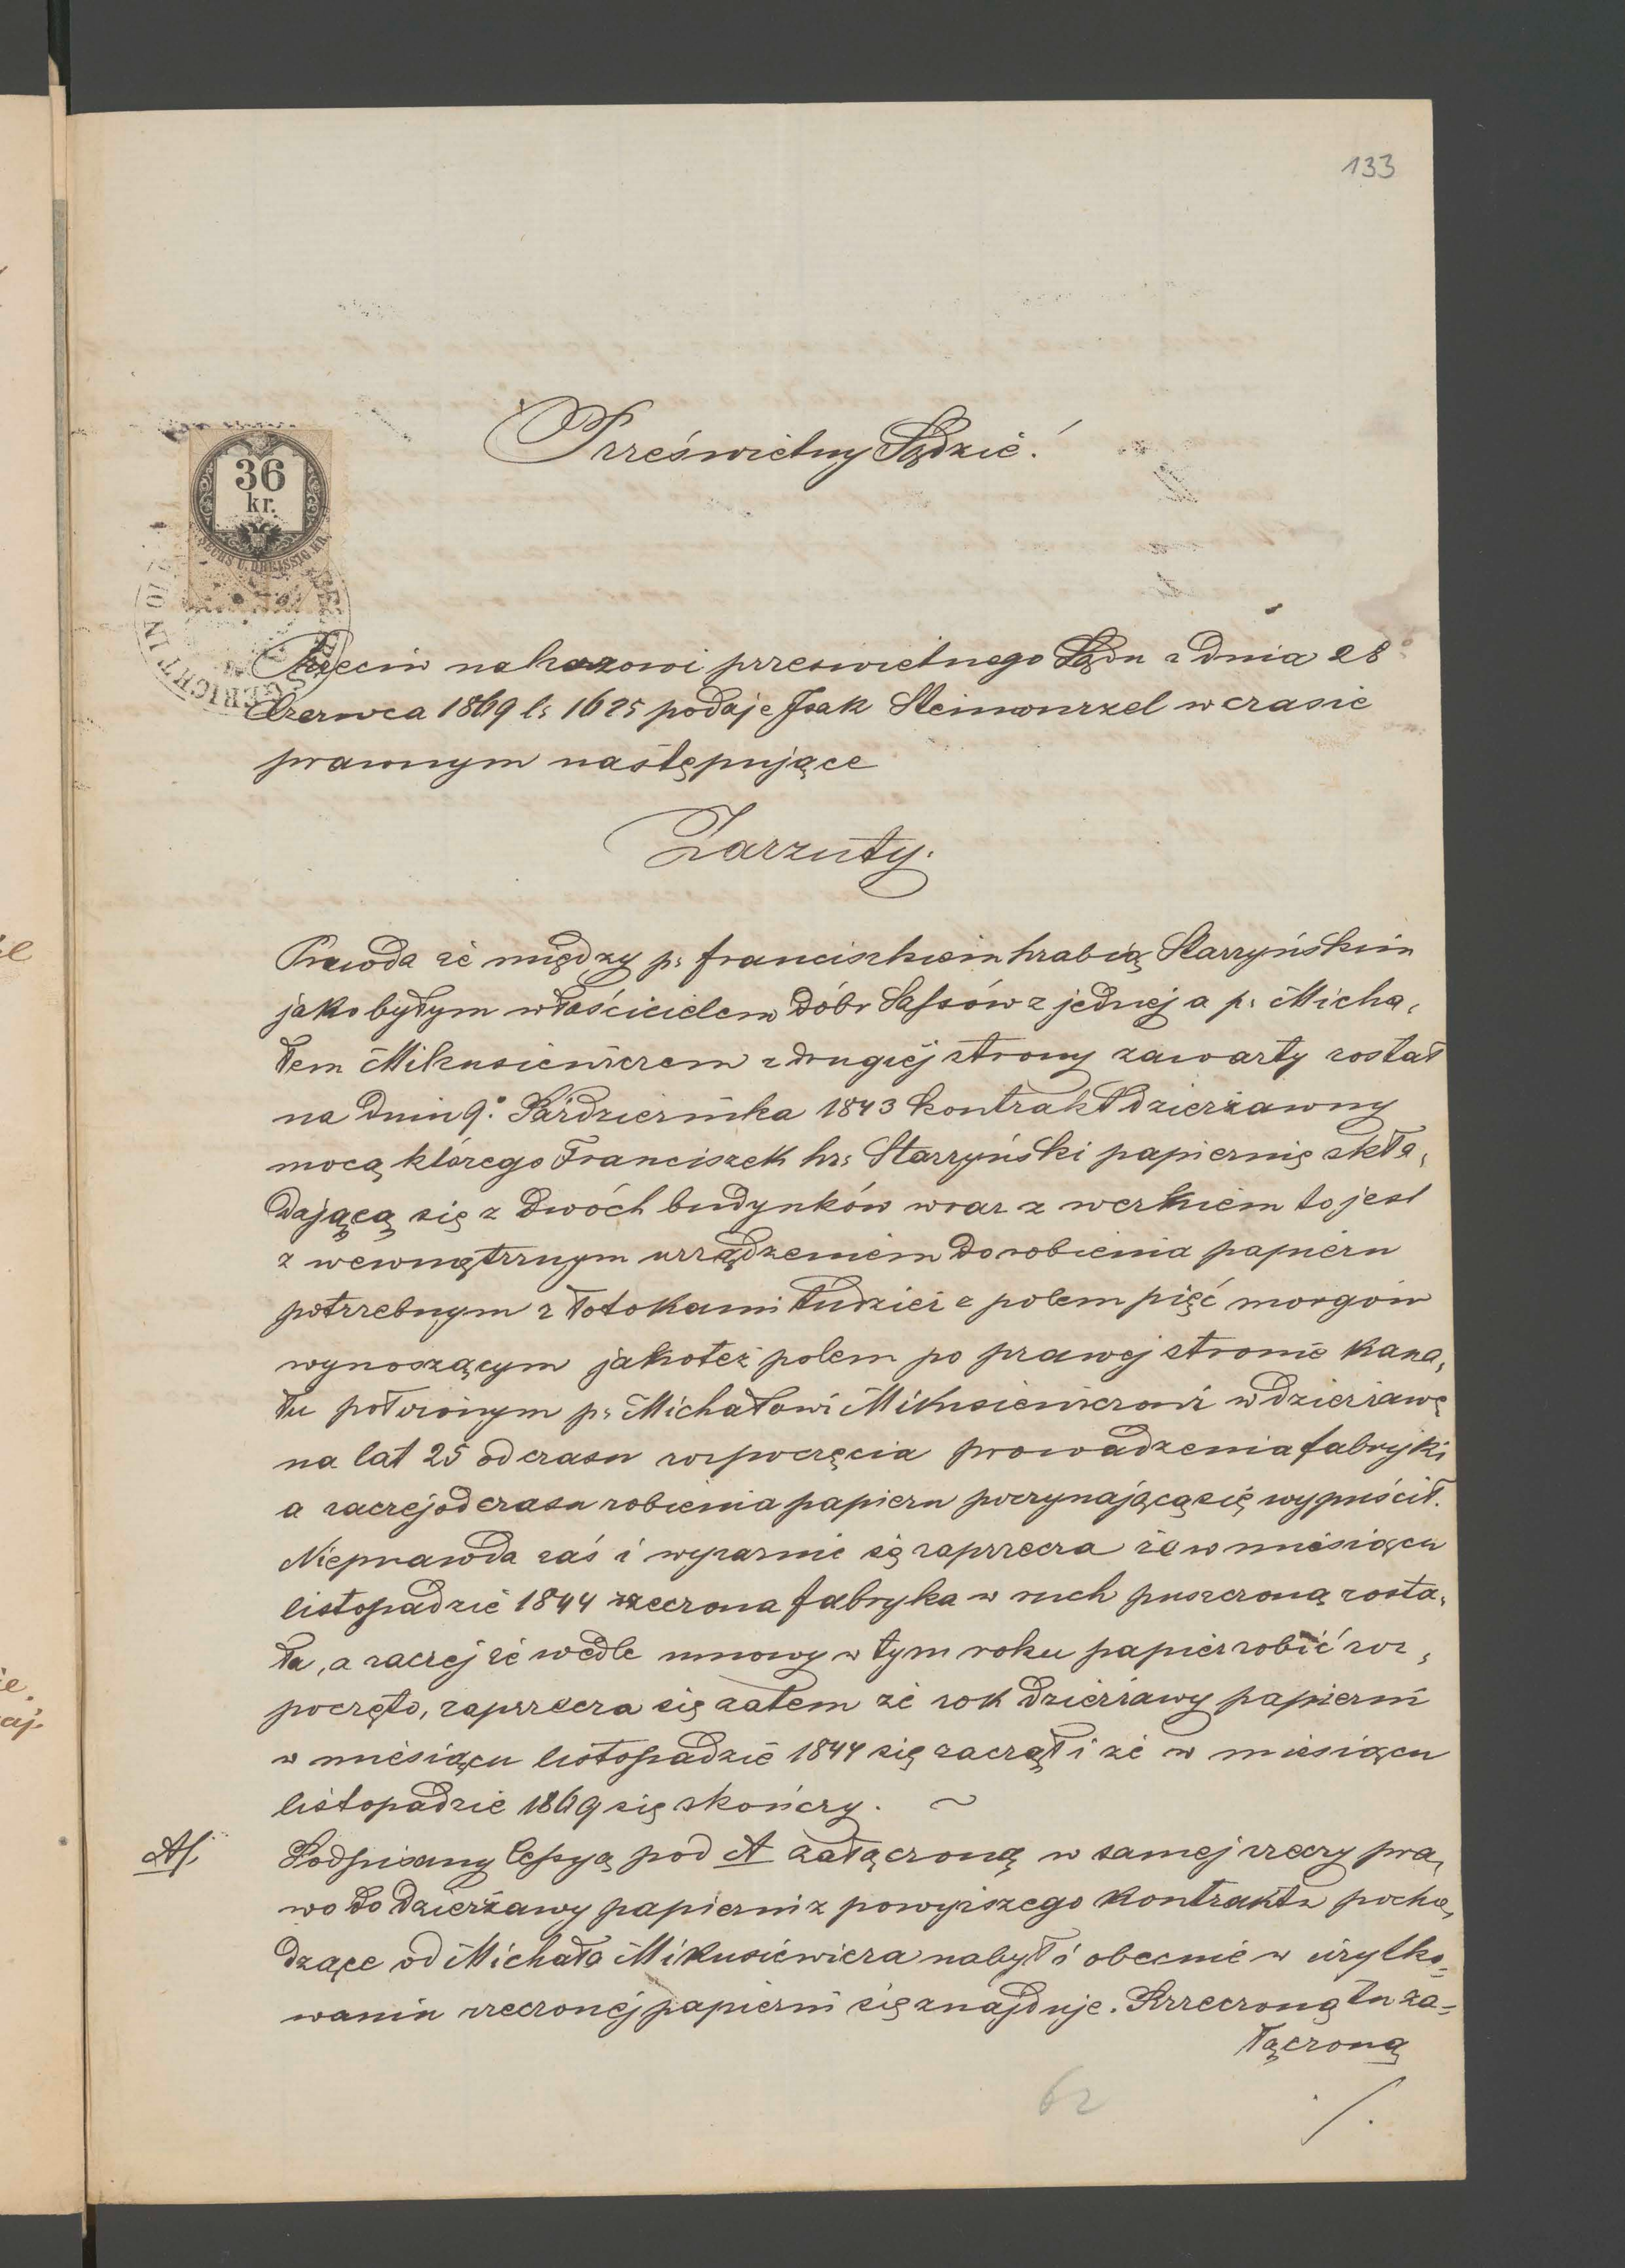 133
Prześwietny Sądzie!
36
kr.
SECHS U. DREISSIG KR.
Przeciw nakazowi prześwietnego Sądu z dnia 28
Czerwca 1869 l: 1625 podaje Isak Steinwurzel w czasie
prawnym następujące
Zarzuty.
Prawda że między p: Franciszkiem hrabią Starzyńskim
jako byłym właścicielem dóbr Sassów z jednej a p: Micha,
łem Mikusiewiczem z drugiéj strony zawarty został
na dniu 9º Października 1843 kontrakt dzierżawny
mocą którego Franciszek hr: Starzyński papiernię skła,
dającą się z dwóch budynków wraz z werkiem to jest
z wewnętrznym urządzeniem do robienia papieru
potrzebnym z łotokami tudzież z polem pięć morgów
wynoszącym jakoteż polem po prawej stronie kana,
łu położonym p: Michałowi Mikusiewiczowi w dzierżawę
na lat 25 od czasu rozpoczęcia prowadzenia fabryki
a raczej od czasu robienia papieru poczynającą się wypuścił.
Nieprawda zaś i wyraźnie się zaprzecza że w miesiącu
listopadzie 1844 rzeczona fabryka w ruch puszczoną zosta,
ła, a raczej że wedle umowy w tym roku papier robić roz,
poczęto, zaprzecza się zatem że rok dzierżawy papierni
w miesiącu listopadzie 1844 się zaczął i że w miesiącu
listopadzie 1869 się skończy. ~
A/. Podpisany Cessyą pod A załączoną w samej rzeczy pra,
wo do dzierżawy papierni z powyższego kontraktu pocho,
dzące od Michała Mikusiewicza nabył i obecnie w użytko-
waniu rzeczonéj papierni się znajduje. Przeczoną tu za-
łączoną
62
./.